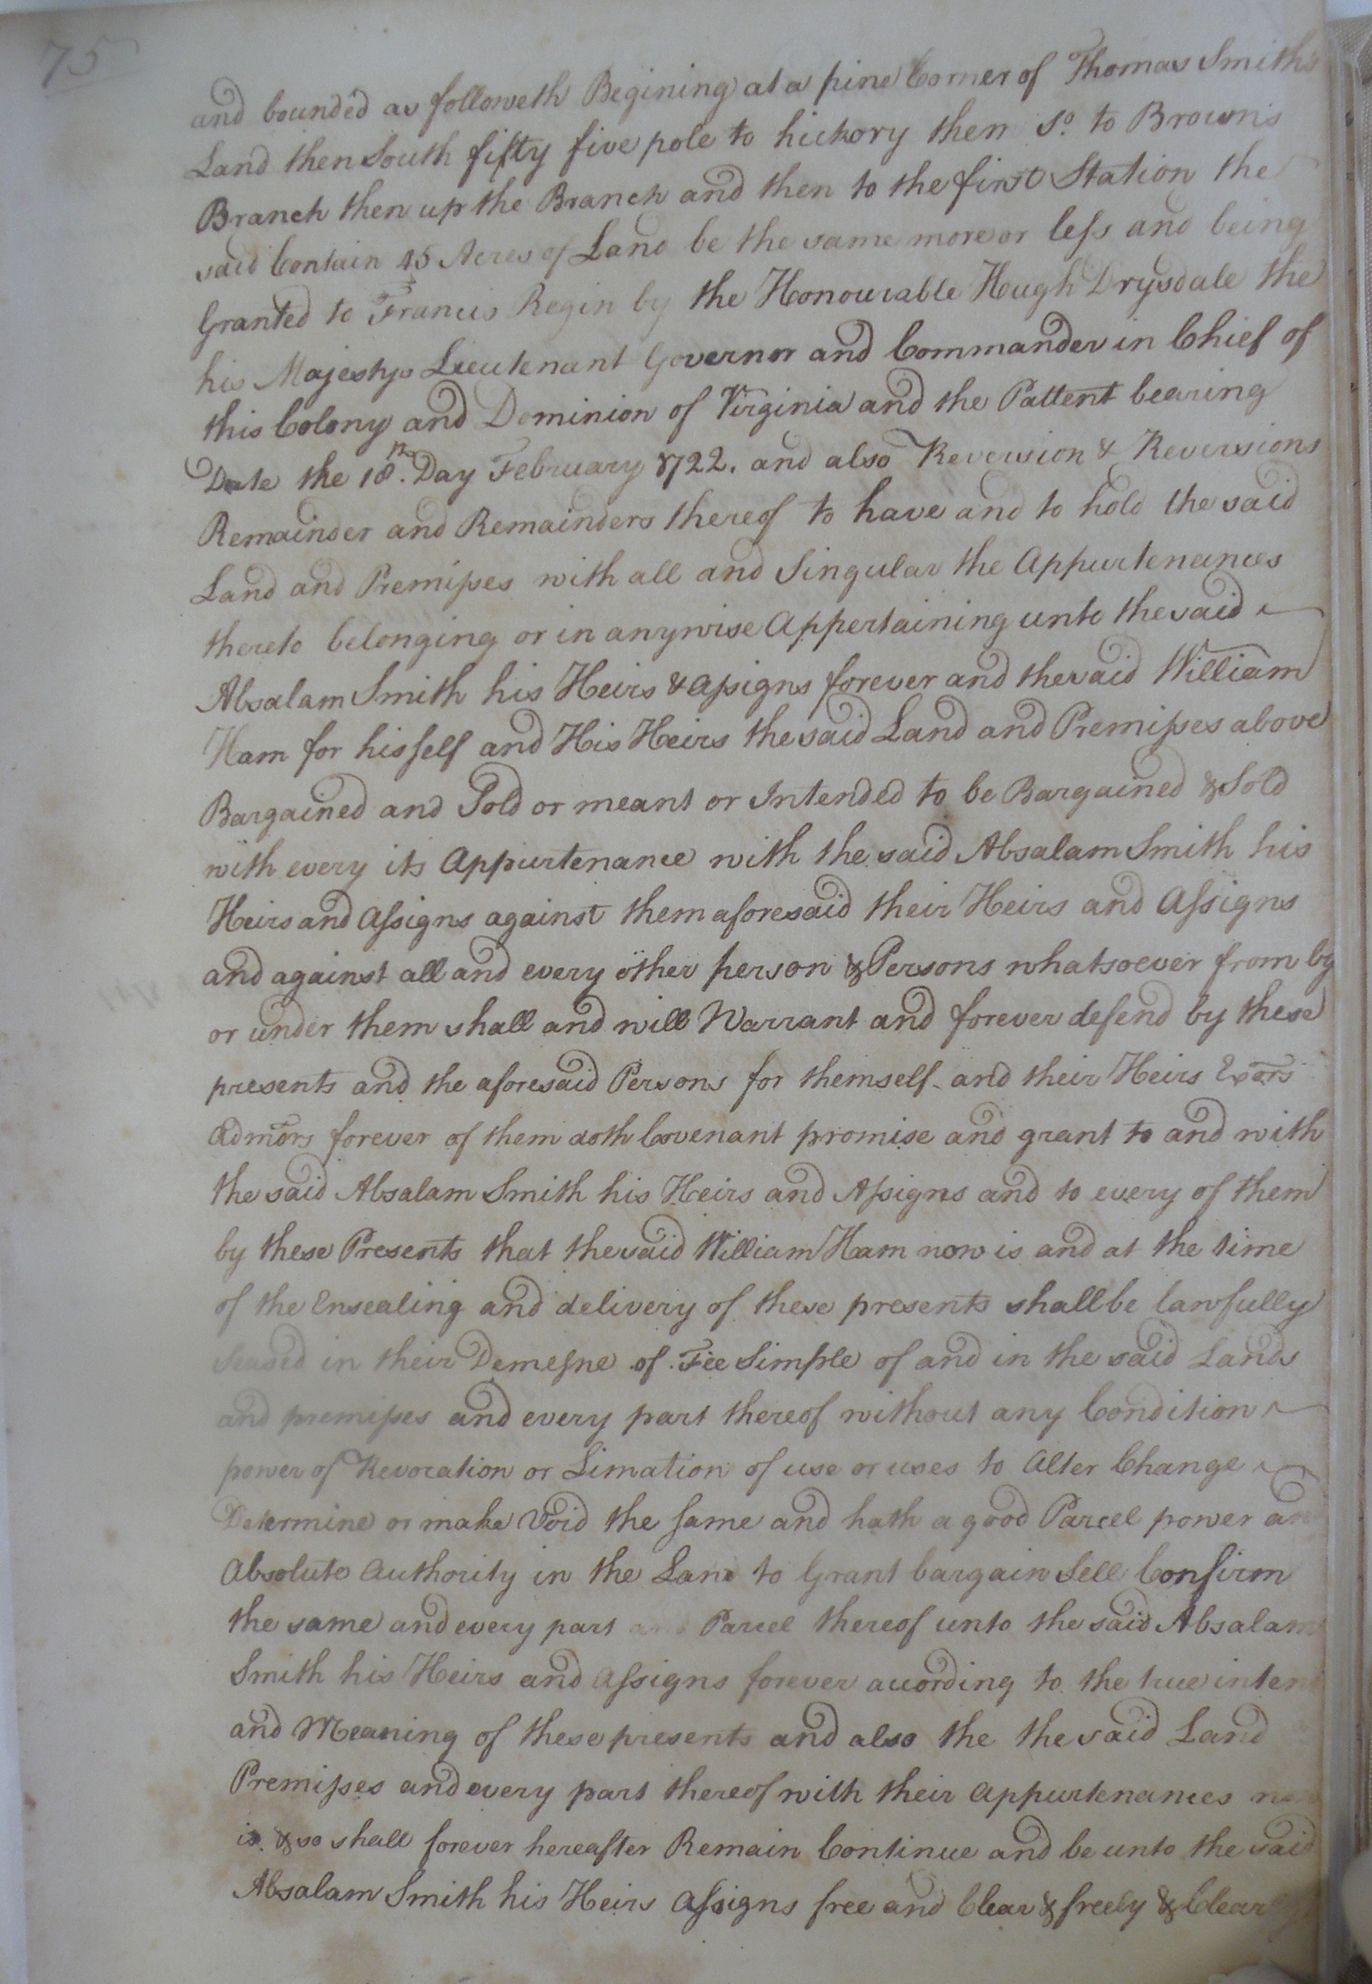 75
and bounded as followeth Begining at a pine Corner of Thomas Smiths
Land then South fifty five pole to hickory then So. to Browns
Branch then up the Branch and then to the first Station the
said Contain 45 Acres of Land be the same more or less and being
Granted to Francis Regin by the Honourable Hugh Drysdale the
his Majestys Lieutenant Governor and Commander in Chief of
this Colony and Dominion of Virginia and the Pattent bearing
Date the 18th. Day February 1722. and also Reversion & Reversions
Remainder and Remainders thereof to have and to hold the said
Land and Premisses with all and Singular the Appurtenances
thereto belonging or in anywise Appertaining unto the said
Absalam Smith his Heirs & Assigns forever and the said William
Ham for hisself and His Heirs the said Land and Premisses above
Bargained and Sold or meant or Intended to be Bargained & Sold
with every its Appurtenance with the said Absalam Smith his
Heirs and Assigns against them aforesaid their Heirs and Assigns
and against all and every other person & Persons whatsoever from by
or under them shall and will Warrant and forever defend by these
presents and the aforesaid Persons for themself and their Heirs Exors
Admors forever of them doth Covenant promise and grant to and with
the said Absalam Smith his Heirs and Assigns and to every of them
by these Presents that the said William Ham now is and at the time
of the Ensealing and delivery of these presents shall be lawfully
Seased in their Demesne of Fee Simple of and in the said Lands
and premisses and every part thereof without any Condition
power of Revocation or Limation of use or uses to Alter Change
Determine or make Void the same and hath a good Parcel power and
Absolute Authority in the Land to Grant bargain Sell Confirm
the same and every part and Parcel thereof unto the said Absalam
Smith his Heirs and Assigns forever acording to the true intent
and Meaning of these presents and also the the said Land
Premisses and every part thereof with their Appurtenances now
is & so shall forever hereafter Remain Continue and be unto the said
Absalam Smith his Heirs Assigns free and Clear & freely & Clearly